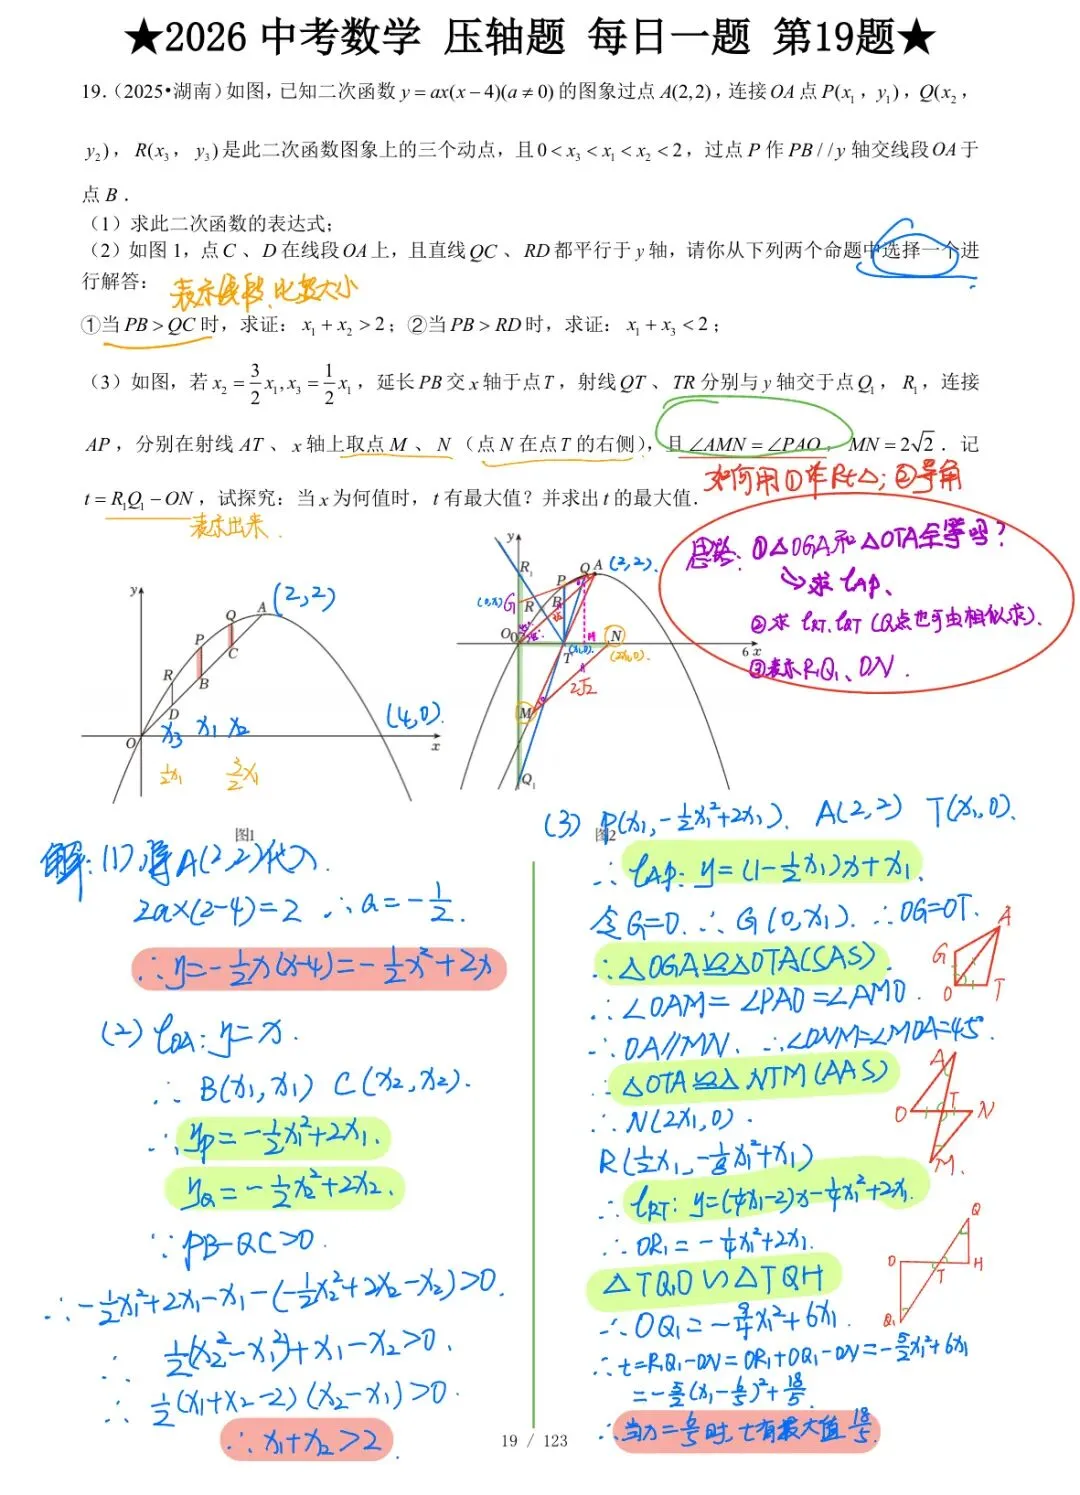 ★2026 中考数学 压轴题 每日一题 第19题★
19.（2025•湖南）如图，已知二次函数 y = ax(x − 4)(a ≠ 0) 的图象过点 A(2,2)，连接 OA 点 P(x₁，y₁)，Q(x₂，
y₂)，R(x₃，y₃) 是此二次函数图象上的三个动点，且 0 < x₃ < x₁ < x₂ < 2，过点 P 作 PB / / y 轴交线段 OA 于
点 B．
（1）求此二次函数的表达式；
（2）如图 1，点 C、D 在线段 OA 上，且直线 QC、RD 都平行于 y 轴，请你从下列两个命题中选择一个进
行解答：
表示线段、比较大小
①当 PB > QC 时，求证：x₁ + x₂ > 2；②当 PB > RD 时，求证：x₁ + x₃ < 2；
（3）如图，若 x₂ = 3/2 x₁, x₃ = 1/2 x₁，延长 PB 交 x 轴于点 T，射线 QT、TR 分别与 y 轴交于点 Q₁，R₁，连接
AP，分别在射线 AT、x 轴上取点 M、N（点 N 在点 T 的右侧），且 ∠AMN = ∠PAO，MN = 2√2．记
如何用①作Rt△；②导角
t = R₁Q₁ − ON，试探究：当 x 为何值时，t 有最大值？并求出 t 的最大值．
表示出来
思路：①△OGA和△OTA全等吗？
→求 lAP、
②求 lRT、lQT（Q点也可由相似求）.
③表示R₁Q₁、ON.
y
R
P
Q
A
(2,2)
D
B
C
O
x₃ x₁ x₂
(4,0).
x
½x₁
3/2x₁
图1
y
R₁
P
Q
A
(2,2).
(0,x₁)
G
R
B
O
H
N
T
(x₁,0).
(2x₁,0).
6 x
2√2
M
Q₁
图2
解：(1)将A(2,2)代入.
2a×(2-4)=2 ∴a=-½.
∴y=-½x(x-4)=-½x²+2x
(2) lOA：y=x.
∴B(x₁,x₁) C(x₂,x₂).
∴yP=-½x₁²+2x₁.
yQ=-½x₂²+2x₂.
∵PB-QC>0.
∴-½x₁²+2x₁-x₁-(-½x₂²+2x₂-x₂)>0.
∴½(x₂²-x₁²)+x₁-x₂>0.
∴½(x₁+x₂-2)(x₂-x₁)>0.
∴x₁+x₂>2
(3) P(x₁,-½x₁²+2x₁). A(2,2) T(x₁,0).
∴lAP：y=(1-½x₁)x+x₁
令G=0.∴G(0,x₁).∴OG=OT.
∴△OGA≌△OTA(SAS).
∴∠OAM=∠PAO=∠AMO.
∴OA∥MN.∴∠ONM=∠MOA=45°.
∴△OTA≌△NTM(AAS)
∴N(2x₁,0).
R(½x₁,-⅛x₁²+x₁)
∴lRT：y=(¼x₁-2)x-¼x₁²+2x₁.
∴OR₁=-¼x₁²+2x₁.
△TQ₁O∽△TQH
∴OQ₁=-9/4x₁²+6x₁.
∴t=R₁Q₁-ON=OR₁+OQ₁-ON=-5/2x₁²+6x₁
=-5/2(x₁-6/5)²+18/5
∴当x₁=6/5时,t有最大值18/5
A
G
O
T
A
O
T
N
M.
Q
O
T
H
Q₁
19 / 123